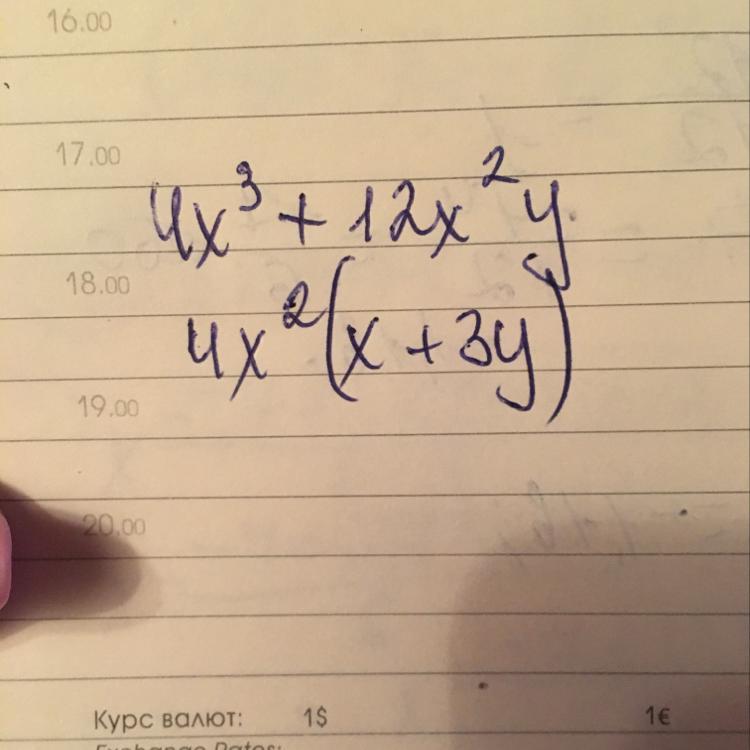 16.00
17.00
4x³ + 12x²y
18.00
4x²(x + 3y)
19.00
20.00
Курс валют: 1$ 1€
Exchange Rates: